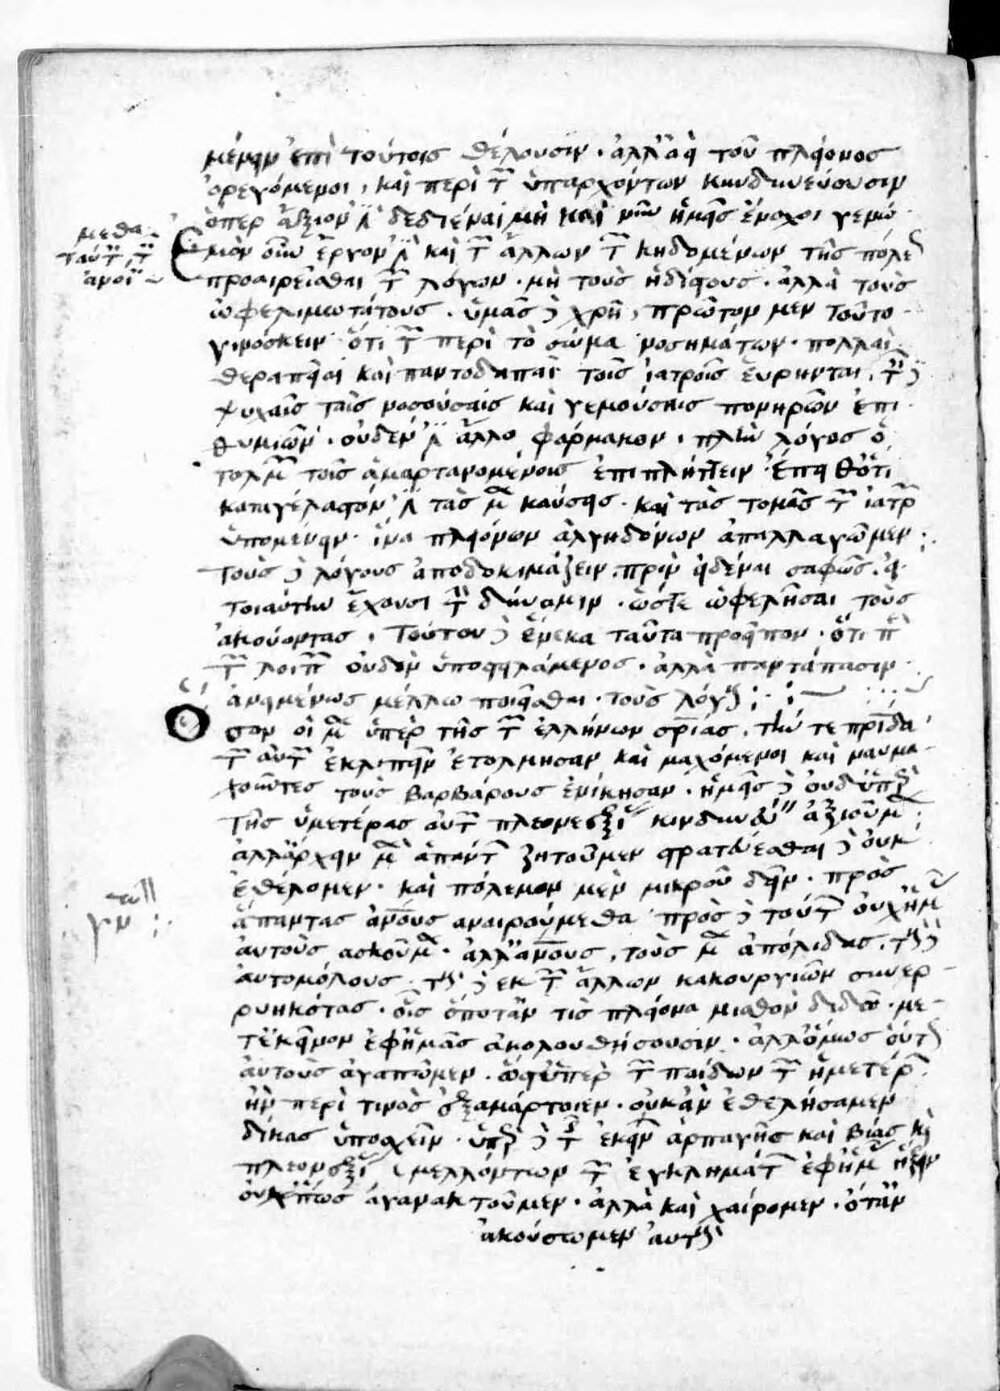 μένειν ἐπὶ τούτοις θέλουσιν · ἀλλ' ἀεὶ τοῦ πλείονος
ὀρεγόμενοι, καὶ περὶ τῶν ὑπαρχόντων κινδυνεύουσιν
ὅπερ ἄξιον ἐστὶ δεδιέναι μὴ καὶ νῦν ἡμεῖς ἔνοχοι γενώ
μεθα
ταύταις ταῖς
ἀνοίαις
Ἐμὸν οὖν ἔργον ἐστὶ καὶ τῶν ἄλλων τῶν κηδομένων τῆς πόλεως
προαιρεῖσθαι τῶν λόγων · μὴ τοὺς ἡδίστους · ἀλλὰ τοὺς
ὠφελιμωτάτους · ὑμᾶς δὲ χρὴ, πρῶτον μὲν τοῦτο
γινώσκειν ὅτι τῶν περὶ τὸ σῶμα νοσημάτων · πολλαὶ
θεραπεῖαι καὶ παντοδαπαὶ τοῖς ἰατροῖς εὕρηνται, ταῖς δὲ
ψυχαῖς ταῖς νοσούσαις καὶ γεμούσαις πονηρῶν ἐπι
θυμιῶν · οὐδέν ἐστιν ἄλλο φάρμακον, πλὴν λόγος ὁ
τολμῶν τοῖς ἁμαρτανομένοις ἐπιπλήττειν · ἔπειθ' ὅτι
καταγέλαστόν ἐστι τὰς μὲν καύσεις · καὶ τὰς τομὰς τῶν ἰατρῶν
ὑπομένειν · ἵνα πλειόνων ἀλγηδόνων ἀπαλλαγῶμεν :
τοὺς δὲ λόγους ἀποδοκιμάζειν, πρὶν εἰδέναι σαφῶς · εἰ
τοιαύτην ἔχουσι τὴν δύναμιν · ὥστε ὠφελῆσαι τοὺς
ἀκούοντας · Τούτου δὲ ἕνεκα ταῦτα προεῖπον · ὅτι περὶ
τῶν λοιπῶν οὐδὲν ὑποστειλάμενος · ἀλλὰ παντάπασιν
ἀνειμένως μέλλω ποιεῖσθαι · τοὺς λόγους :
Ὅσον οἱ μὲν ὑπὲρ τῆς τῶν ἑλλήνων σωτηρίας, τήν τε πατρίδα
τὴν αὑτῶν ἐκλιπεῖν ἐτόλμησαν καὶ μαχόμενοι καὶ ναυμα
χοῦντες τοὺς βαρβάρους ἐνίκησαν · ἡμεῖς δὲ οὐδ' ὑπὲρ
τῆς ἡμετέρας αὐτῶν πλεονεξίας κινδυνεύειν ἀξιοῦμεν
ἀλλ' ἄρχειν μὲν ἁπάντων ζητοῦμεν στρατεύεσθαι δὲ οὐκ
ἐθέλομεν · καὶ πόλεμον μὲν μικροῦ δεῖν · πρὸς
ἅπαντας ἀνθρώπους ἀναιρούμεθα πρὸς δὲ τοῦτον οὐχ ἡμᾶς
αὐτοὺς ἀσκοῦμεν · ἀλλ' ἀνθρώπους, τοὺς μὲν ἀπόλιδας, τοὺς δὲ
αὐτομόλους, τοὺς δὲ ἐκ τῶν ἄλλων κακουργιῶν συνερ
ρυηκότας · οἷς ὁπόταν τις πλείονα μισθὸν διδῶ · με
τ' ἐκείνων ἐφ' ἡμᾶς ἀκολουθήσουσιν · ἀλλ' ὅμως οὕτως
αὐτοὺς ἀγαπῶμεν · ὥσθ' ὑπὲρ τῶν παίδων τῶν ἡμετέρων
ἢν περί τινος ἐξαμάρτοιεν · οὐκ ἂν ἐθελήσαμεν
δίκας ὑποσχεῖν · ὑπὲρ δὲ τῆς ἐκείνων ἁρπαγῆς καὶ βίας καὶ
πλεονεξίας μελλόντων τῶν ἐγκλημάτων ἐφ' ἡμᾶς ἥξειν
οὐχ ὅπως ἀγανακτοῦμεν · ἀλλὰ καὶ χαίρομεν · ὅταν
ἀκούσωμεν αὐτοὺς